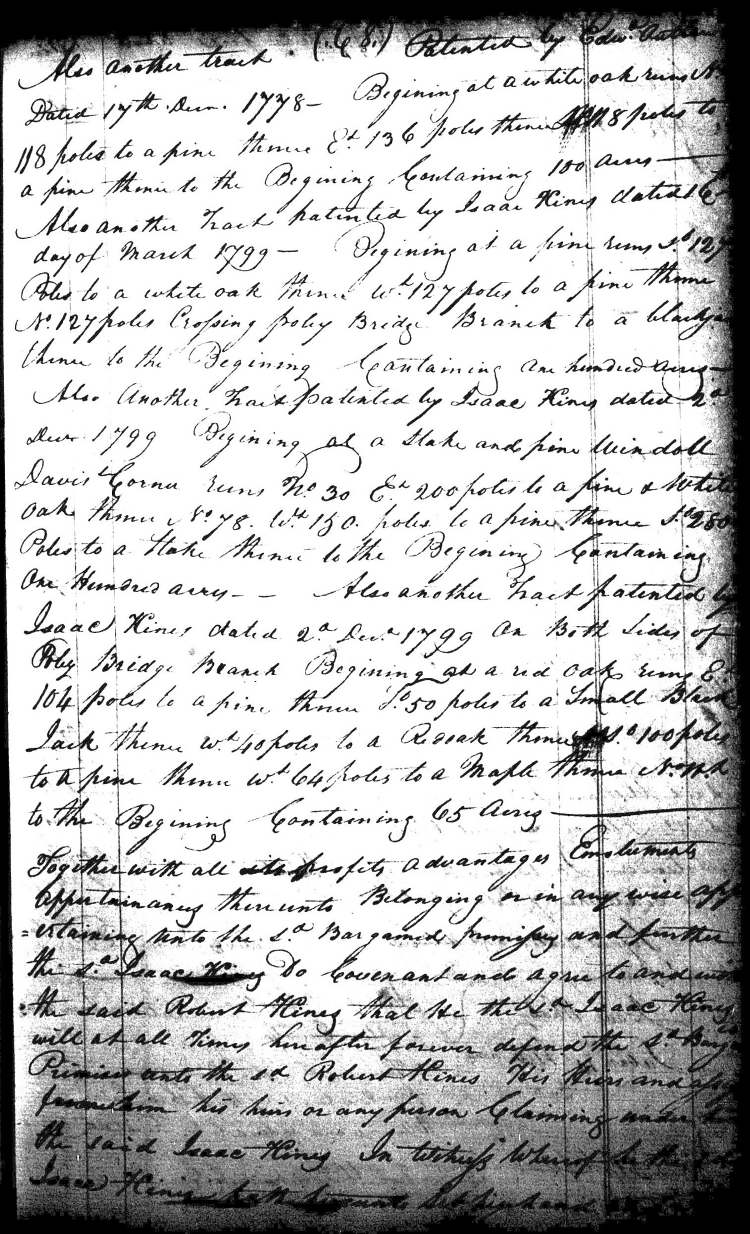 (68.)
Also another tract Patented by Edwd.
Dated 17th Decm. 1778 — Begining at a white oak runs No.
118 poles to a pine thence Et. 136 poles thence 118 poles to
a pine thence to the Begining Containing 100 acres —
Also another Tract patented by Isaac Hines dated
day of March 1799 — Begining at a pine runs So. 127
Poles to a white oak thence Wt. 127 poles to a pine thence
No. 127 poles Crossing poley Bridge Branch to a
thence to the Begining Containing one hundred acres —
Also Another Tract patented by Isaac Hines dated 2d
Decr 1799 Begining at a Stake and pine Windoll
Davis Cornu runs No. 30 Et. 200 poles to a pine & White
Oak thence No. 78. Wt. 150. poles to a pine thence So. 280
Poles to a Stake thence to the Begining Containing
One Hundred acres — — Also another Tract patented by
Isaac Hines dated 2d Decr 1799 On Both Sides of
Poley Bridge Branch Begining at a red Oak runs Et.
104 poles to a pine thence So. 50 poles to a Small Black
Jack thence Wt. 40 poles to a Redoak thence So. 100 poles
to a pine thence Wt. 64 poles to a Maple thence
to the Begining Containing 65 Acres —
Together with all profits advantages Emoluments
Appertainances thereunto Belonging or in any wise app
=ertaining unto the sd. Bargained premises and further
the sd. Isaac Hines Do Covenant and agree to and with
the said Robert Hines that He the sd. Isaac Hines
will at all Times hereafter forever defend the sd.
Premises unto the sd Robert Hines His Heirs and
from him his heirs or any person Claiming under
the said Isaac Hines In Witness Whereof he the
Isaac Hines hath hereunto Set his hand